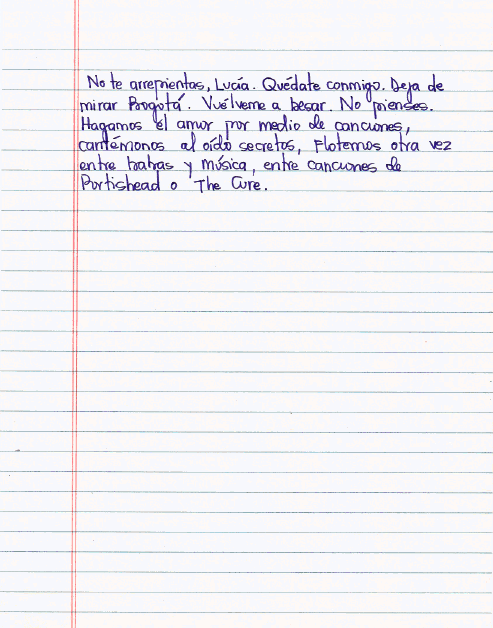 No te arrepientas, Lucía. Quédate conmigo. Deja de
mirar Bogotá. Vuélveme a besar. No pienses.
Hagamos el amor por medio de canciones,
cantémonos al oído secretos, Flotemos otra vez
entre y música, entre canciones de
Portishead o The Cure.